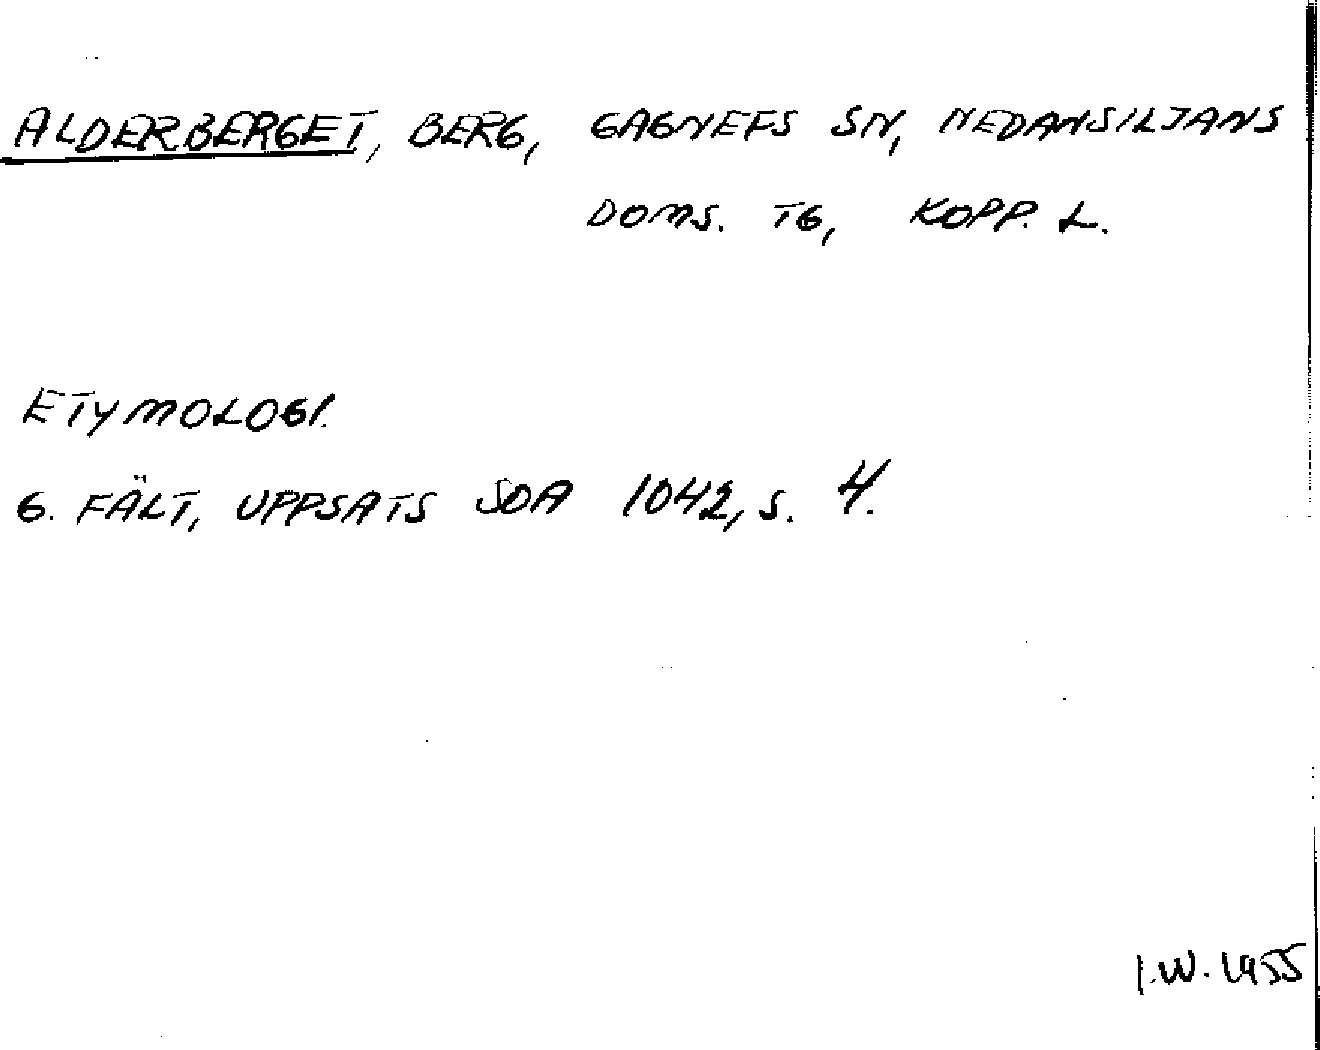 ALDERBERGET, BERG, GAGNEFS SN, NEDANSILJANS
DOMS. TG, KOPP. L.
ETYMOLOGI.
G. FÄLT, UPPSATS SOA 1042, S. 4.
I.W. 1955